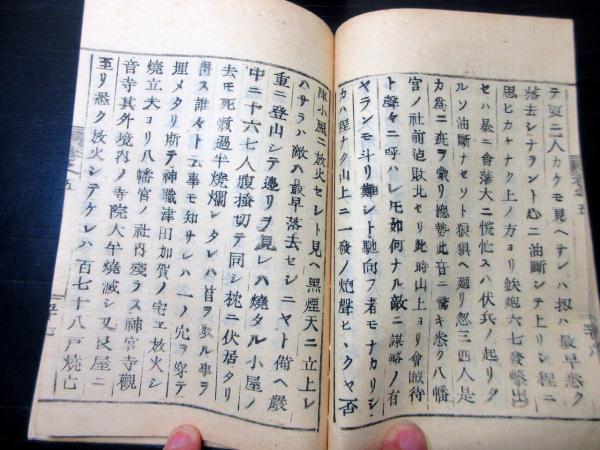 テ更ニ人カケモ見ヘサレハ扨ハ最早悉ク
落去シナラント心ニ油断シテ上リシ程ニ
思ヒカケナク上ノ方ヨリ鉄炮六七發撃出
セハ暴ニ會落大ニ慌忙スハ伏兵ノ起リタ
ルソ油断ナセソト狼狽ヘ廻リ忽三四人是
カ為ニ疵ヲ蒙リ總勢此音ニ驚キ悉ク八幡
宮ノ社前迠敗北セリ此時山上ヨリ會賊待
ト聲々ニ呼ハレ𪜈如何ナル敵ニ謀略ノ有
ヤランモ斗リ難シト馳向フ者モナカリシ
カハ程ナク山上ニ一發ノ炮聲ヒヽクヤ否
陳小屋ニ放火セシト見ヘ黒煙天ニ立上レ
ハサラハ敵ハ最早落去セシニヤト備ヘ嚴
重ニ登山シテ邊リヲ見レハ燒タル小屋ノ
中ニ十六七人腹掻切テ同シ枕ニ伏居タリ
去モ死骸過半燒爛レタレハ首ヲ取ル事ヲ
得ス誰々ト云事モ知サレハ一ノ穴ヲ穿テ
埋メタリ斯テ神職津田加賀ノ宅ヱ放火シ
燒立夫ヨリ八幡宮ノ社内殘ラス神宮寺觀
音寺其外境内ノ寺院大半燒滅シ又民屋ニ
至リ悉ク放火シテケレハ百七十八戸燒亡